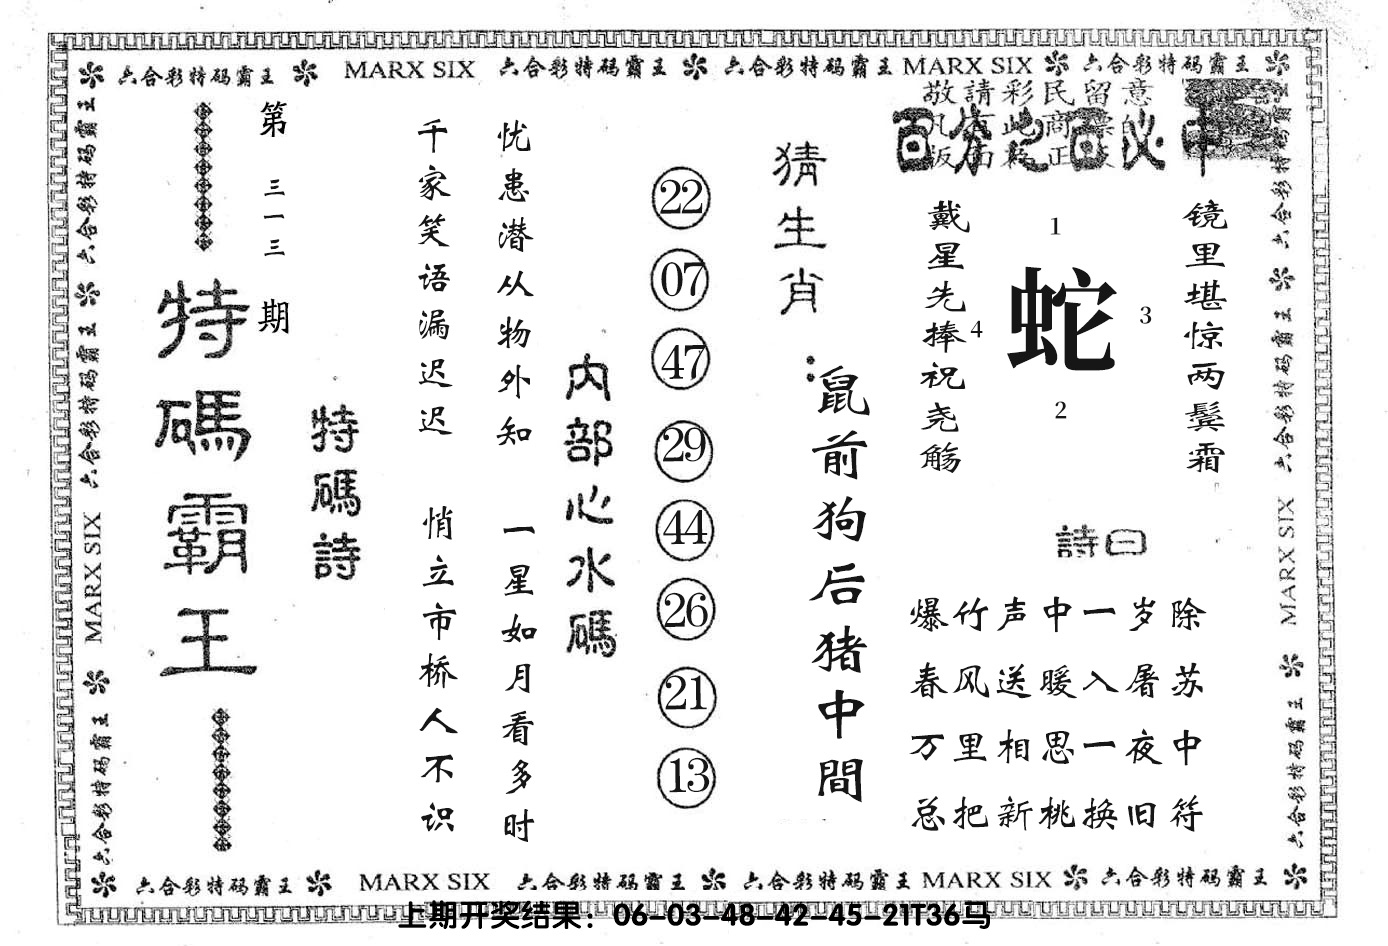 六合彩特码霸王 MARX SIX 六合彩特码霸王 六合彩特码霸王 MARX SIX 六合彩特码霸王
敬請彩民留意
百分之百必中
镜里堪惊两鬓霜
1
蛇
3
4
2
戴星先捧祝尧觞
詩曰
爆竹声中一岁除
春风送暖入屠苏
万里相思一夜中
总把新桃换旧符
猜生肖:
鼠前狗后猪中間
22
07
47
29
44
26
21
13
内部心水碼
忧患潜从物外知
一星如月看多时
千家笑语漏迟迟
悄立市桥人不识
特碼詩
第三一三期
特碼霸王
六合彩特码霸王 六合彩特码霸王 MARX SIX 六合彩特码霸王
六合彩特码霸王 六合彩特码霸王 MARX SIX 六合彩特码霸王
六合彩特码霸王 MARX SIX 六合彩特码霸王 六合彩特码霸王 MARX SIX 六合彩特码霸王
上期开奖结果：06-03-48-42-45-21T36马